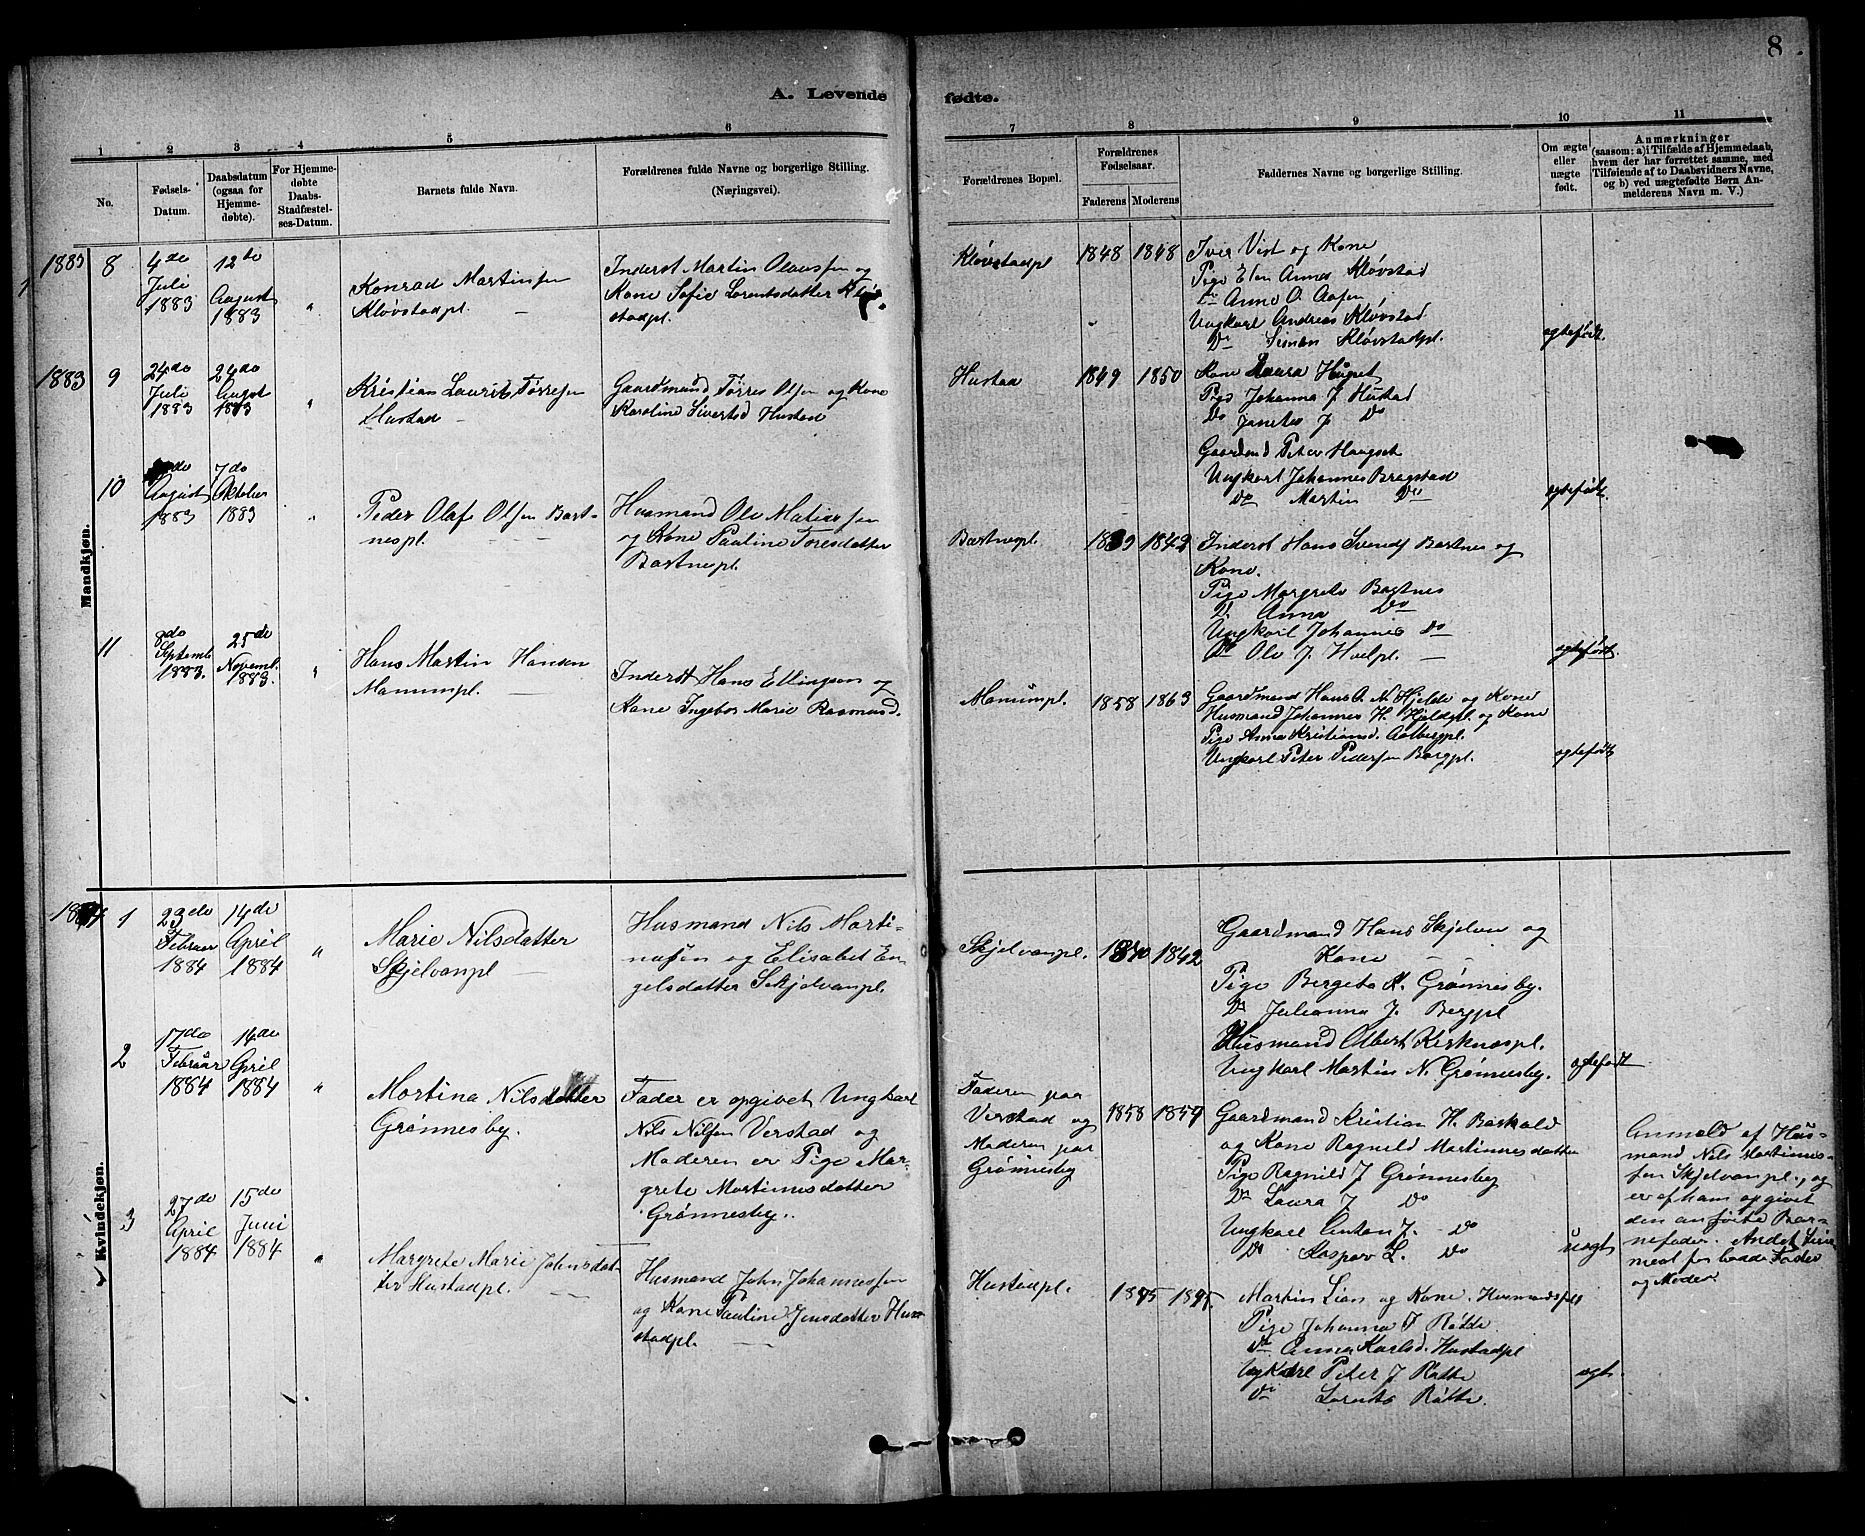 8
A. Levende fødte.
1
2
3
4
5
6
7
8
9
10
11
No.
Fødsels-
Datum.
Daabsdatum
(ogsaa for
Hjemme-
døbte).
For Hjemme-
døbte
Daabs-
Stadfæstel-
ses-Datum.
Barnets fulde Navn.
Forældrenes fulde Navne og borgerlige Stilling.
(Næringsvei).
Forældrenes Bopæl.
Forældrenes
Fødselsaar.
Faderens
Moderens
Faddernes Navne og borgerlige Stilling.
Om ægte
eller
uægte
født.
Anmærkninger
(saasom: a) i Tilfælde af Hjemmedaab,
hvem der har forrettet samme, med
Tilføiende af to Daabsvidners Navne,
og b) ved uægtefødte Børn An-
melderens Navn m. V.)
Mandkjøn.
1883 8
4de
Juli
1883
12te
August
1883
"
Konrad Martinsen
Kløvstadpl.
Inderst Martin Olaussen og
Kone Sofie Lorentsdatter Kløv-
stadpl.
Kløvstadpl
1848 1848
Iver Vist og Kone
Pige Elen Anna Kløvstad
Do Anne O. Aasen
Ungkarl Andreas Kløvstad
Do Simon Kløvstadpl.
egtefødt.
1883 9
24de
Juli
1883
24de
August
1883
"
Kristian Laurits Tørresen
Hustad
Gaardmand Tørres Olsen og Kone
Karoline Sivertsd Hustad
Hustad
1849 1850
Kone Laura
Pige Johanna J Hustad
Do J Do
Gaardmd Peter Haugset
Ungkarl Johannes Bragstad
Do Martin Do
egtefødt.
10
de
August
1883
7de
Oktober
1883
"
Peder Olaf Olsen Bart-
nespl.
Husmand Ole Matiassen
og Kone Pauline Toresdatter
Bartnespl.
Bartnespl.
1839 1842
Inderst Hans Svends Bartnes og
Kone.
Pige Margrete Bartnes
D. Anna Do
Ungkarl Johannes Do
Do Ole J. Hvelpl.
egtefødt
11
8de
Septemb
1883.
25de
Novemb.
1883.
"
Hans Martin Hansen
Manumpl.
Inderst Hans Ellingsen og
Kone Ingebor Marie Rasmusd.
Manumpl.
1858 1863
Gaardmand Hans A. N. Hjelde og Kone
Husmand Johannes H. Hjeldepl. og Kone
Pige Anna Kristiansd. Aalbergpl.
Ungkarl Peter Pedersen Bargpl.
egtefødt
Kvindekjøn.
1884 1
23de
Februar
1884
14de
April
1884
"
Marie Nilsdatter
Skjelvanpl
Husmand Nils Marti-
nusen og Elisabet En-
gelsdatter Skjelvanpl.
Skjelvanpl.
1840 1842
Gaardmand Hans Skjelven og
Kone
Pige Bergeta K. Grønnesby.
Do Julianna J. Bergpl
Husmand Albert Kirknespl.
Ungkarl Martin N. Grønnesby.
egtefødt
2
17de
Februar
1884
14de
April
1884
"
Martina Nilsdatter
Grønnesby.
Fader er opgivet Ungkarl
Nils Nilsen Verstad og
Moderen er Pige Mar-
grete Martinusdatter
Grønnesby.
Faderen paa
Verstad og
Moderen paa
Grønnesby
1858 1857
Gaardmand Kristian H. Barkald
og Kone Ragnild Martinusdatter
Pige Ragnild J Grønnesby
Do Laura J Do
Ungkarl Anton J. Do
Do Kaspar L. Do
uegt
Anmeld af Hus-
mand Nils Martinus-
sen Skjelvanpl., og
er af ham opgivet
den anførte Bar-
nefader. Andet Leie
meal for bodde Fader
og Moder
3
27de
April
1884
15de
Juni
1884
"
Margrete Marie Johnsdat-
ter Hustadpl.
Husmand John Johannessen
og Kone Pauline Jensdatter Hu-
stadpl.
Hustadpl.
1845 1845.
Martin Lian og Kone. Husmandsfolk
Pige Johanna J Røtte
Do Anna Karlsd. Hustadpl
Ungkarl Peter J Røtte
Do Lorents Røtte.
egt